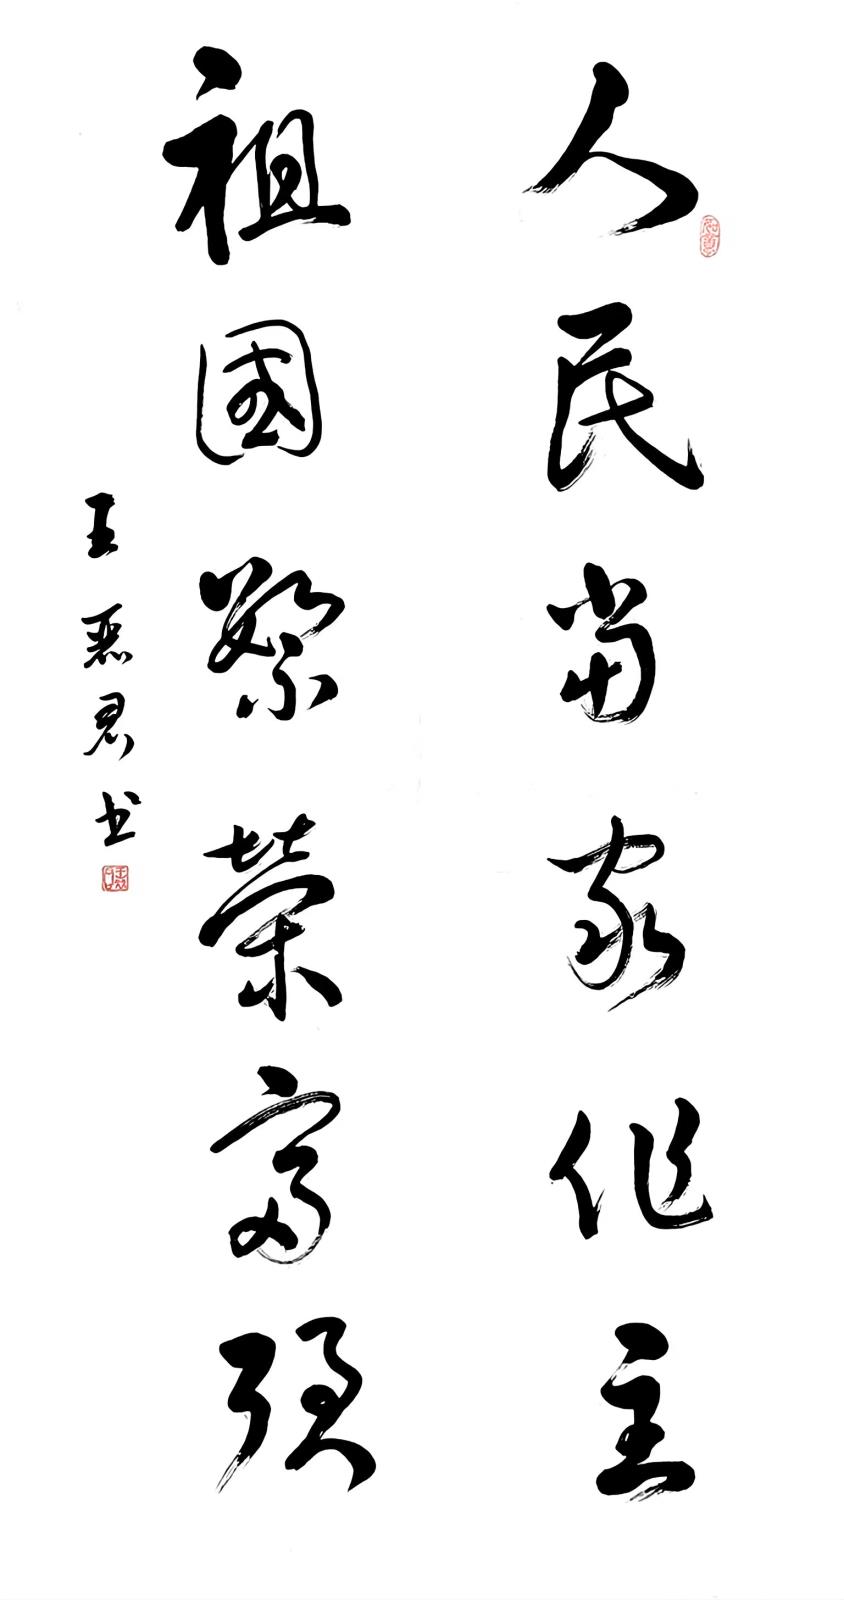 人民当家作主
祖國繁榮富强
王恶君书